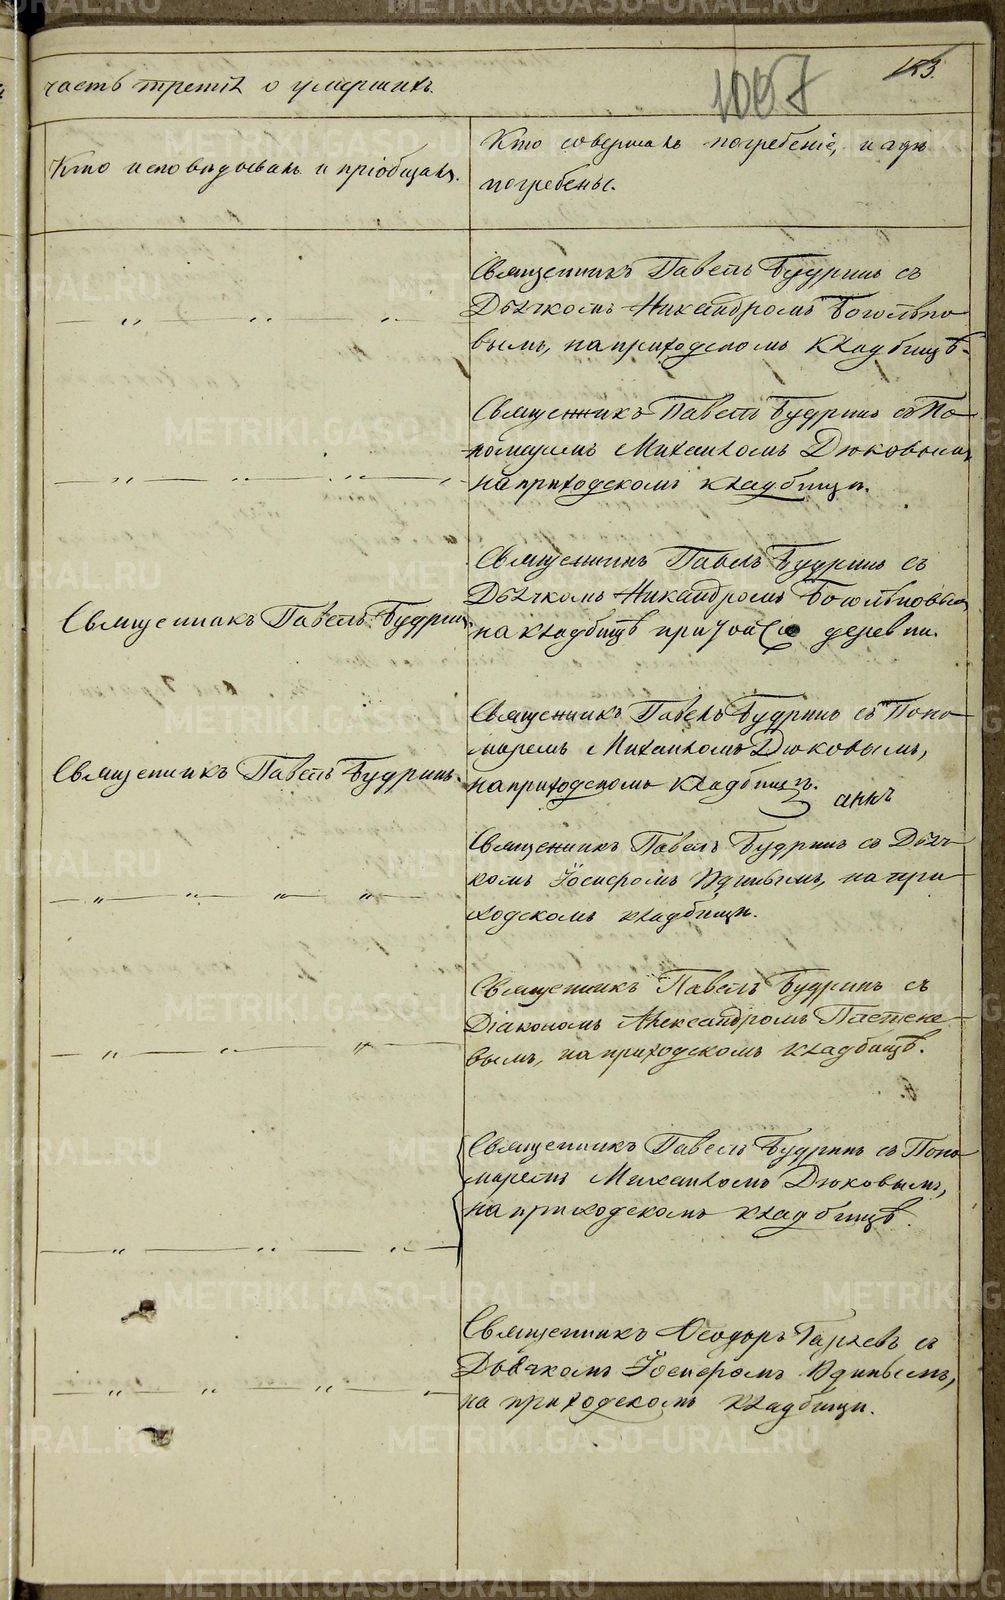 часть третія о умершихъ.
1007
153.
Кто исповѣдовалъ и пріобщалъ.
Кто совершалъ погребеніе, и гдѣ
погребены.
Священникъ Павелъ Будринъ съ
Дьячкомъ Никандромъ Боголѣпо
вымъ, на приходскомъ кладбищѣ.
Священникъ Павелъ Будринъ съ По
номаремъ Михаиломъ Дюковымъ,
на приходскомъ кладбищѣ.
Священникъ Павелъ Будринъ
Священникъ Павелъ Будринъ съ
Дьячкомъ Никандромъ Боголѣповымъ
на кладбищѣ при деревни.
Священникъ Павелъ Будринъ.
Священникъ Павелъ Будринъ съ Поно
маремъ Михаиломъ Дюковымъ,
на приходскомъ кладбищѣ.
Священникъ Павелъ Будринъ съ Дьяч
комъ Іосифомъ Удинымъ, на при
ходскомъ кладбищѣ.
Священникъ Павелъ Будринъ съ
Діакономъ Александромъ
вымъ, на приходскомъ кладбищѣ.
Священникъ Павелъ Будринъ съ Поно
маремъ Михаиломъ Дюковымъ,
на приходскомъ кладбищѣ.
Священникъ Ѳеодоръ Гаряевъ съ
Дьячкомъ Іосифомъ Удинымъ,
на приходскомъ кладбищѣ.
METRIKI.GASO-URAL.RU